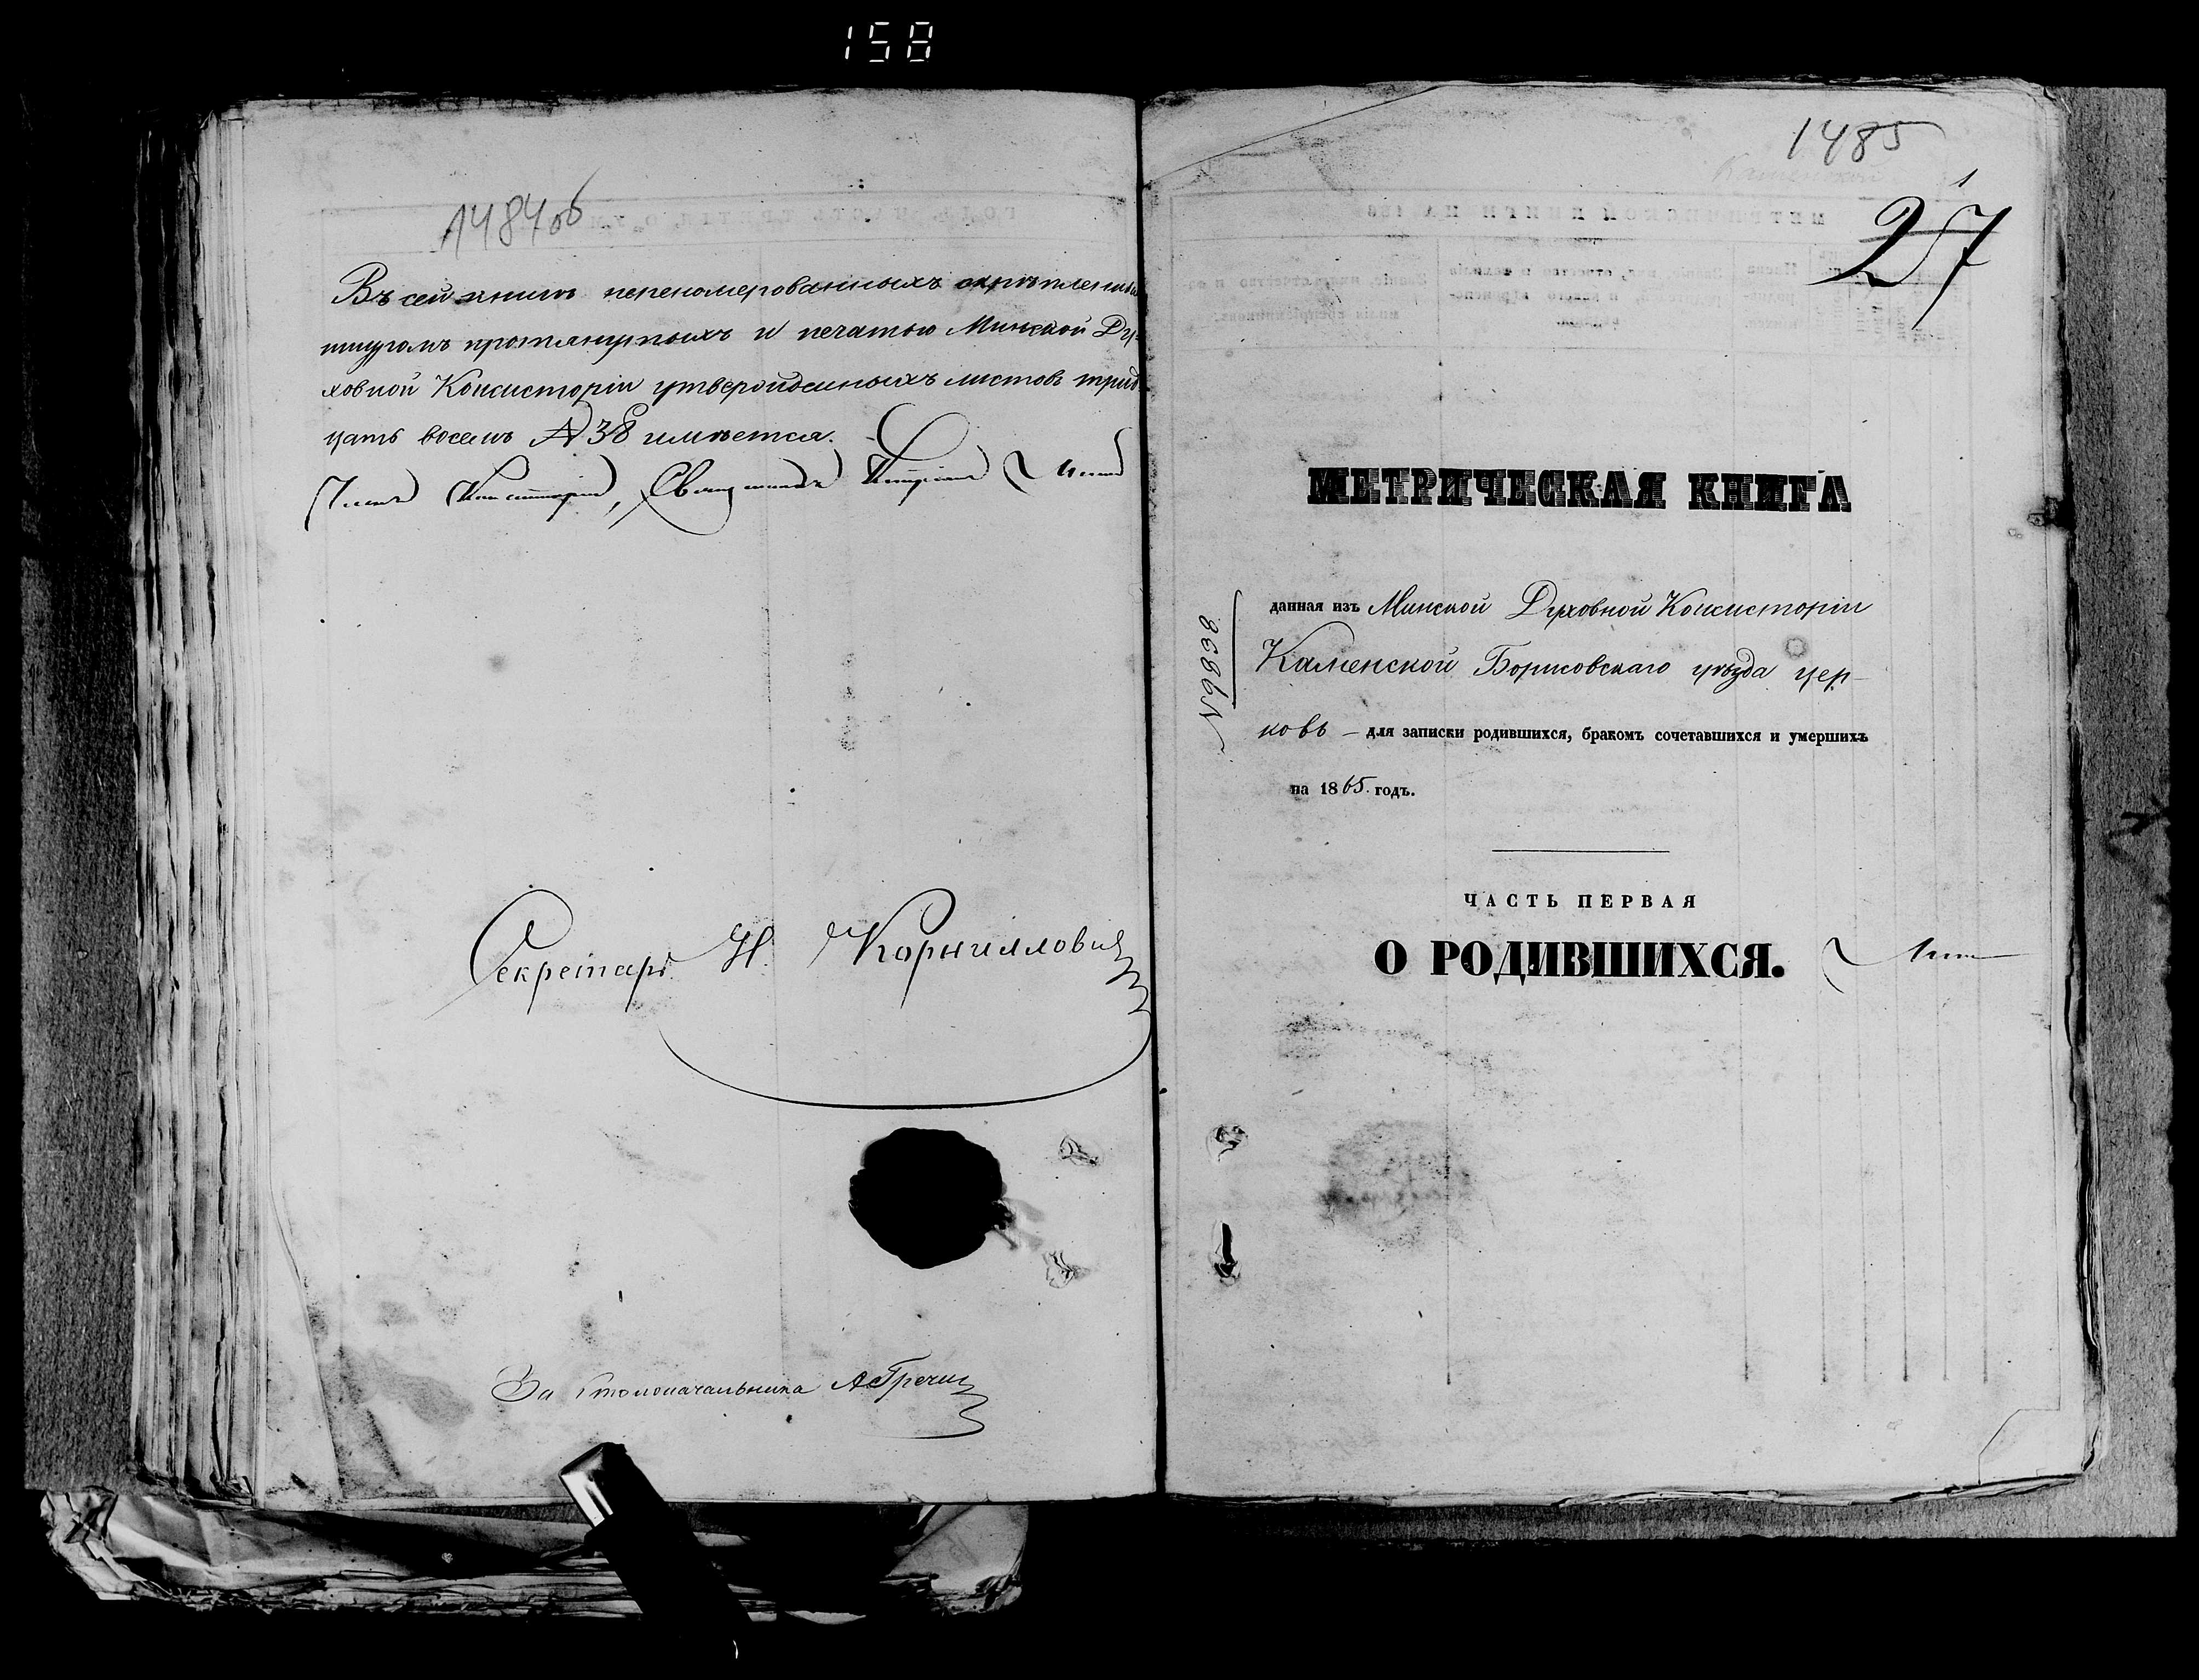 158
1484об
Въ сей книгѣ переномерованныхъ скрѣпленныхъ
шнуромъ протянутыхъ и печатью Минской Ду-
ховной Консисторіи утвержденныхъ листовъ трид
цать восемь № 38 имѣется.
Членъ Консисторіи, Священникъ
Секретарь Н. Корниллович
За Столоначальника А Гречин
1485
1
27
МЕТРИЧЕСКАЯ КНИГА
данная изъ Минской Духовной Консисторіи
Каменской Борисовскаго уѣзда цер-
ковь – для записки родившихся, бракомъ сочетавшихся и умершихъ
на 1865 годъ.
№ 9838
ЧАСТЬ ПЕРВАЯ
О РОДИВШИХСЯ.